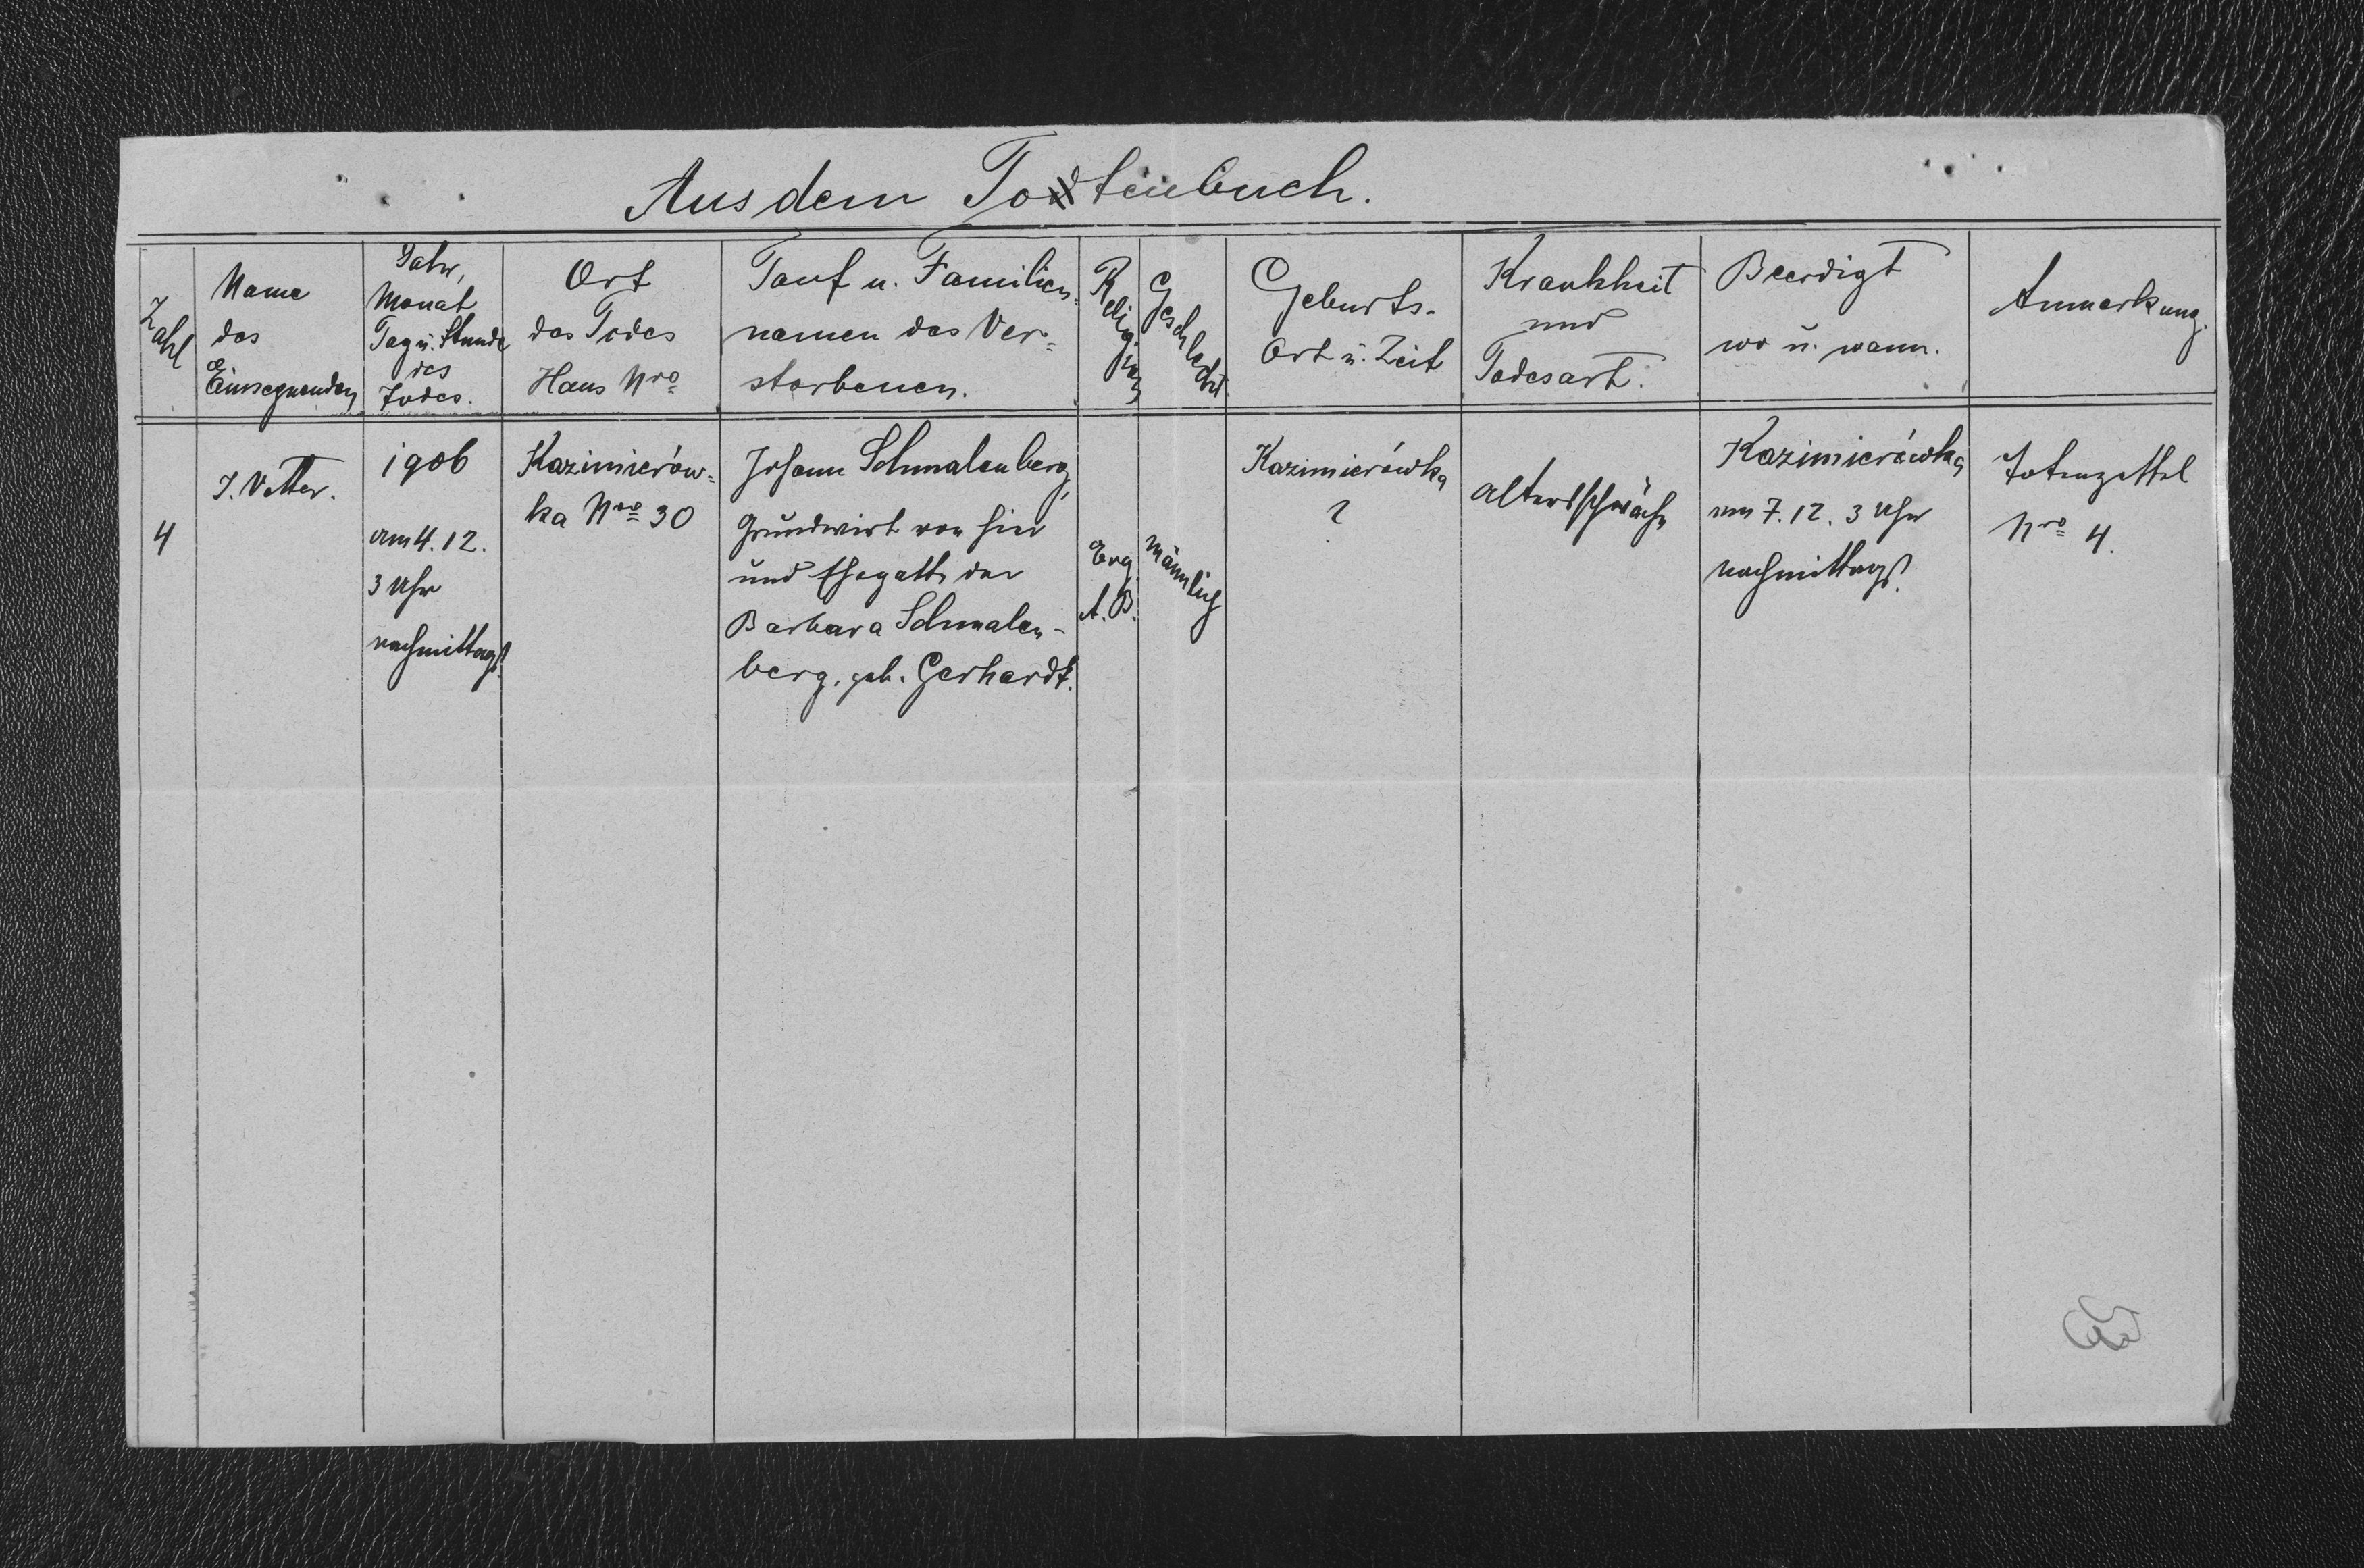 Aus dem Todtenbuch.
Zahl
Name
des
Einsegnenden
Jahr,
Monat
Tag u. Stunde
des
Todes.
Ort
des Todes
Haus Nro
Tauf u. Familien-
namen des Ver-
storbenen.
Religion
Geschlecht
Geburts-
Ort u. Zeit
Krankheit
und
Todesart.
Beerdigt
wo u. wann.
Anmerkung.
4
J. Vetter.
1906
am 4. 12.
3 Uhr
nachmittags.
Kazimierów-
ka Nro 30
Johann Schmalenberg,
Grundwirt von hier
und Ehegatte der
Barbara Schmalen-
berg, geb. Gerhardt.
Evg.
A. B.
männlich
Kazimierówka
?
Altersschwäche
Kazimierówka
am 7. 12. 3 Uhr
nachmittags.
Totenzettel
Nro 4.